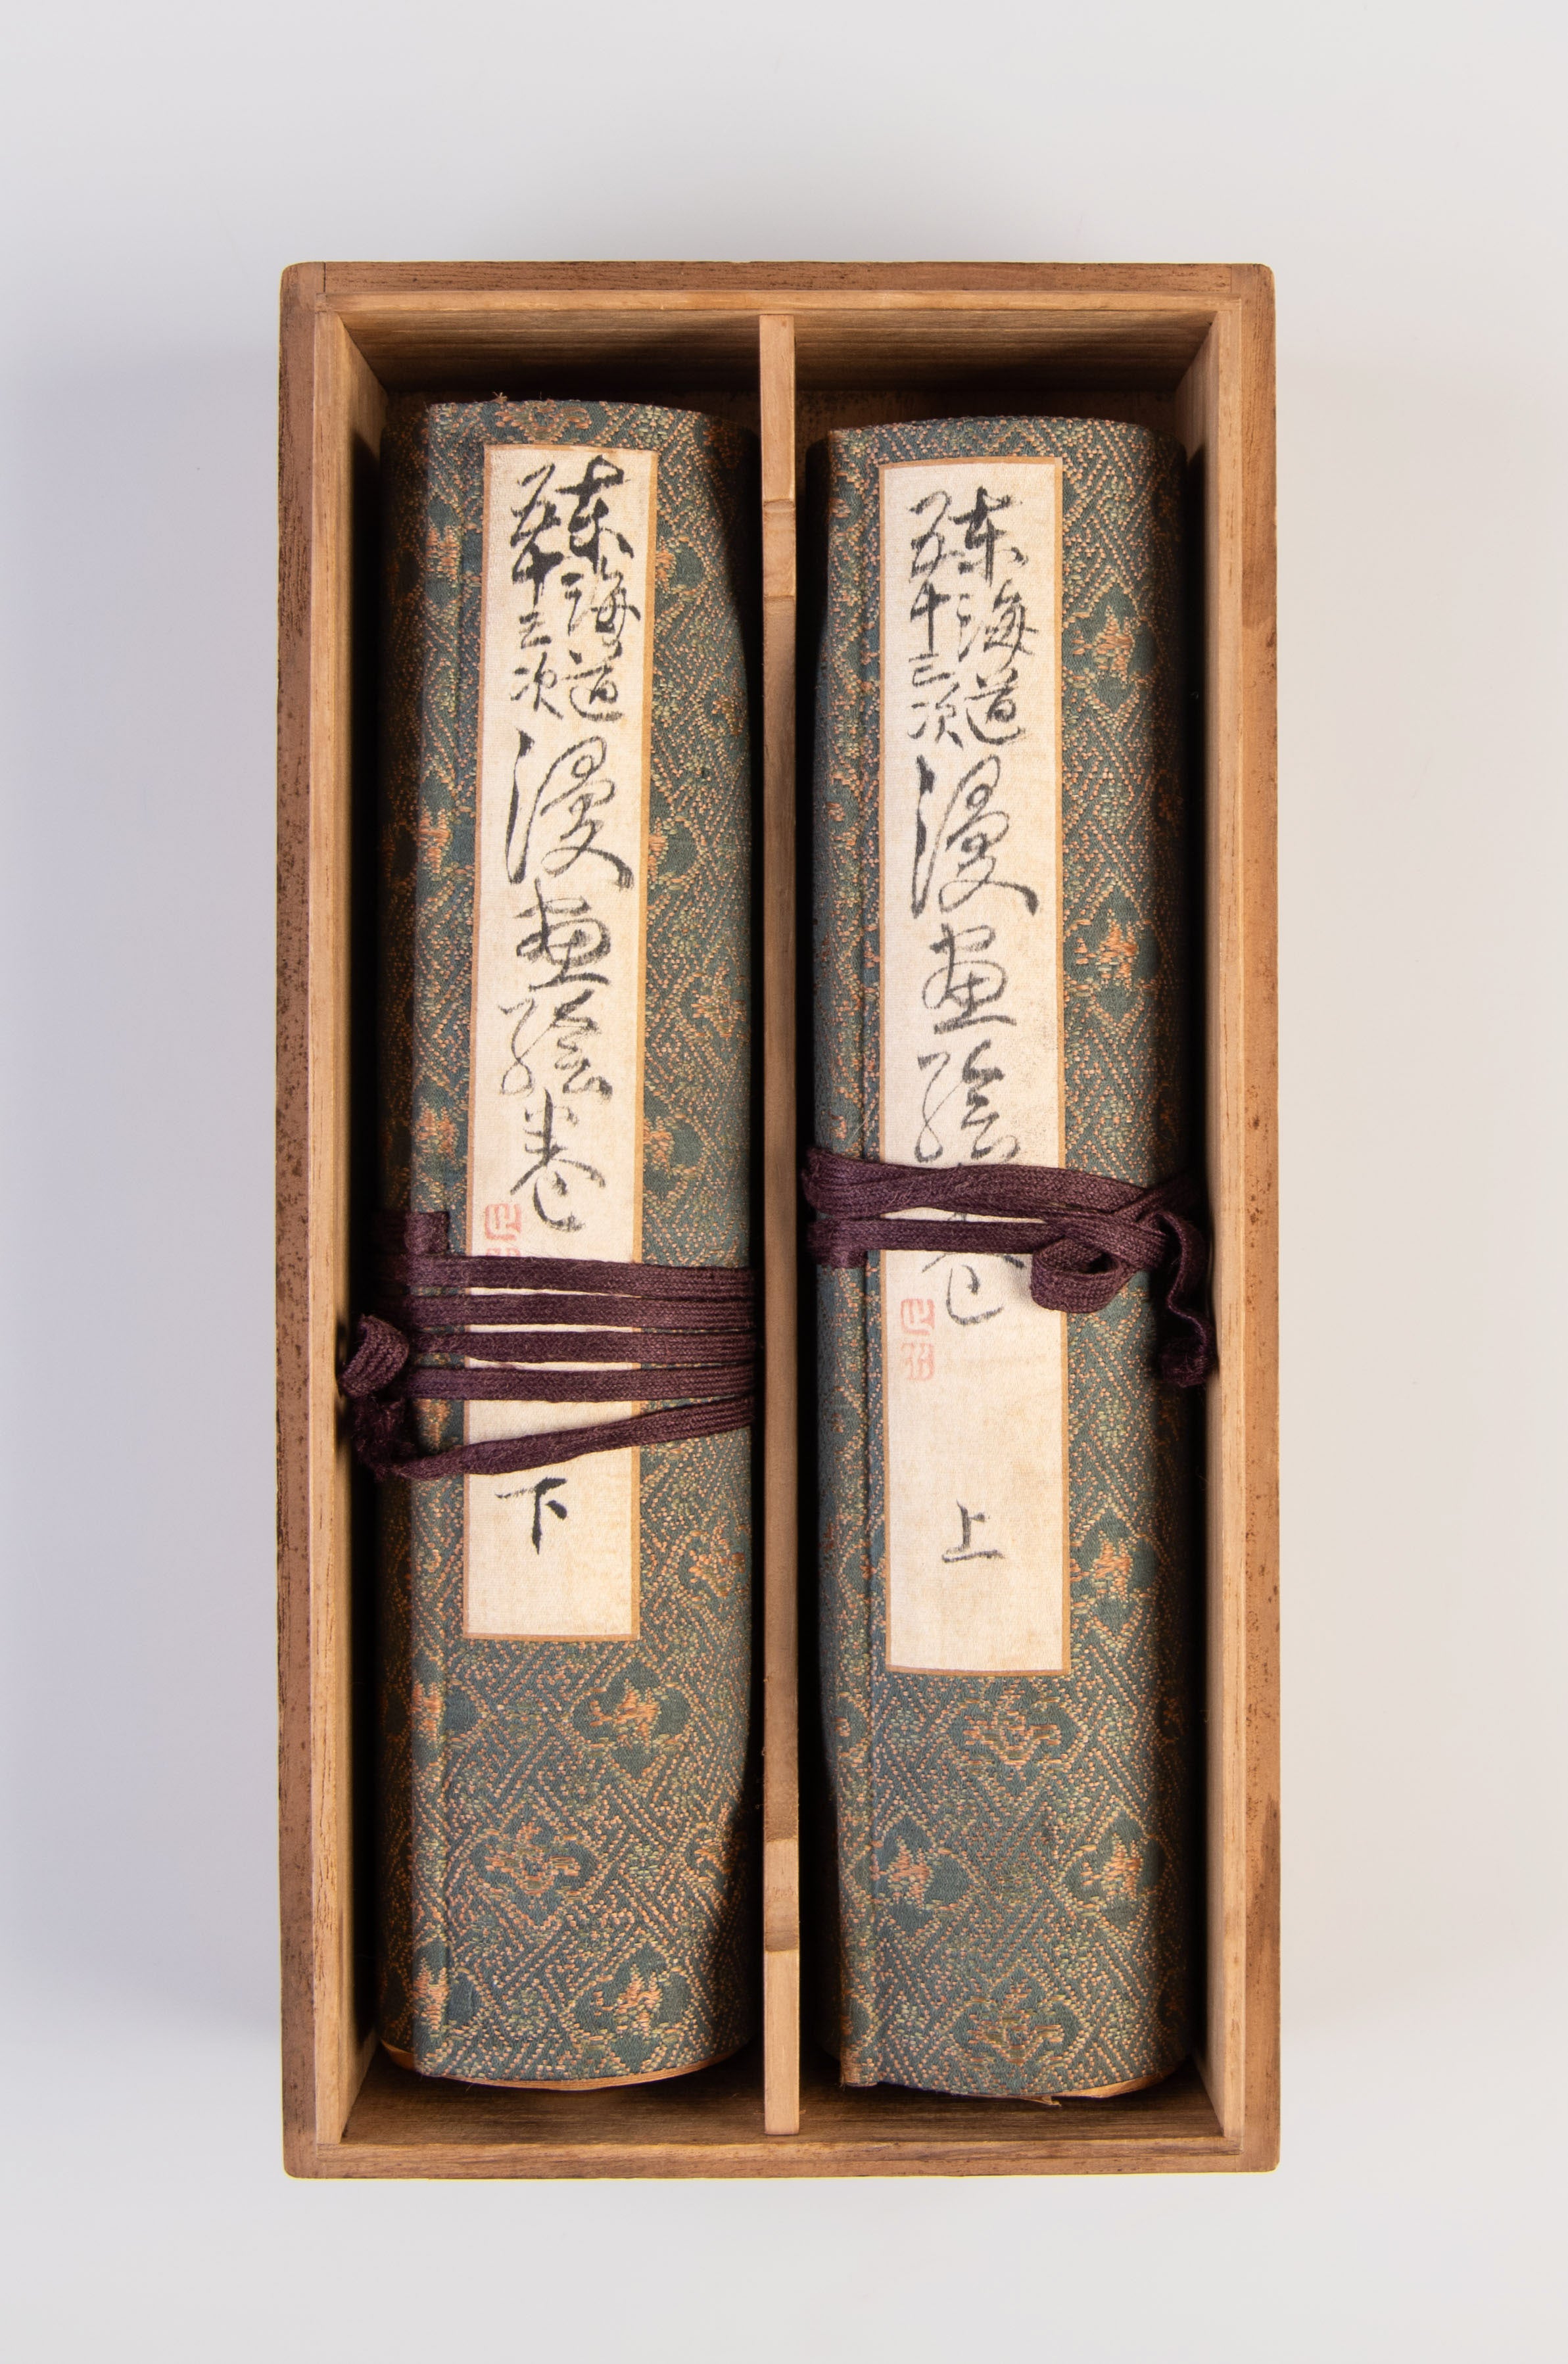 東海道
五十三次
漫画絵巻
上
東海道
五十三次
漫画絵巻
下